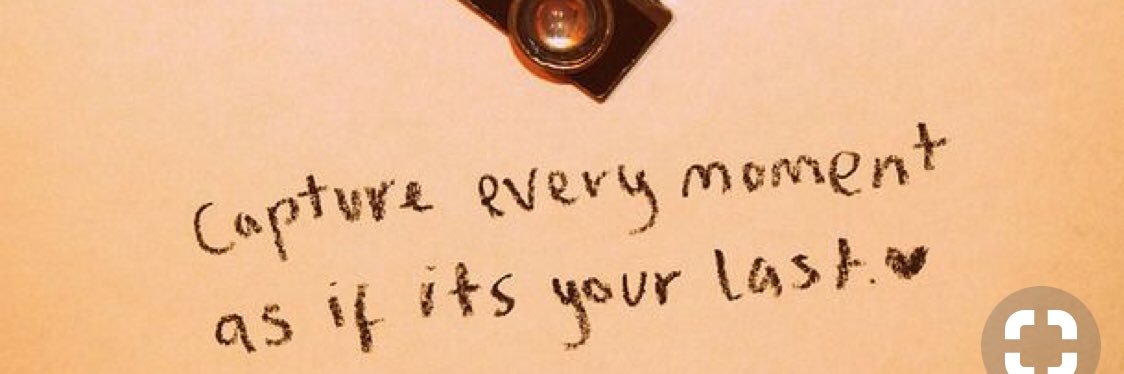 Capture every moment
as if its your last.♥